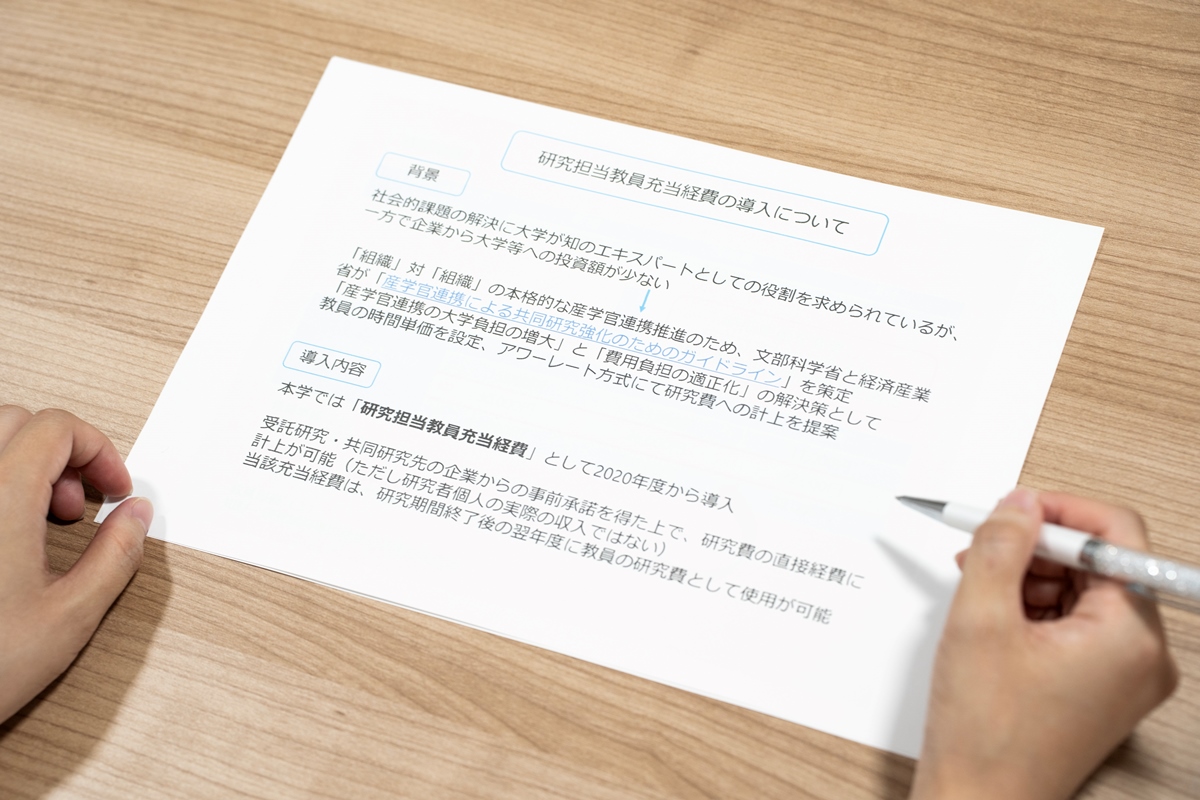 研究担当教員充当経費の導入について
背景
社会的課題の解決に大学が知のエキスパートとしての役割を求められているが、
一方で企業から大学等への投資額が少ない
「組織」対「組織」の本格的な産学官連携推進のため、文部科学省と経済産業
省が「産学官連携による共同研究強化のためのガイドライン」を策定
「産学官連携の大学負担の増大」と「費用負担の適正化」の解決策として
教員の時間単価を設定、アワーレート方式にて研究費への計上を提案
導入内容
本学では「研究担当教員充当経費」として2020年度から導入
受託研究・共同研究先の企業からの事前承諾を得た上で、研究費の直接経費に
計上が可能（ただし研究者個人の実際の収入ではない）
当該充当経費は、研究期間終了後の翌年度に教員の研究費として使用が可能